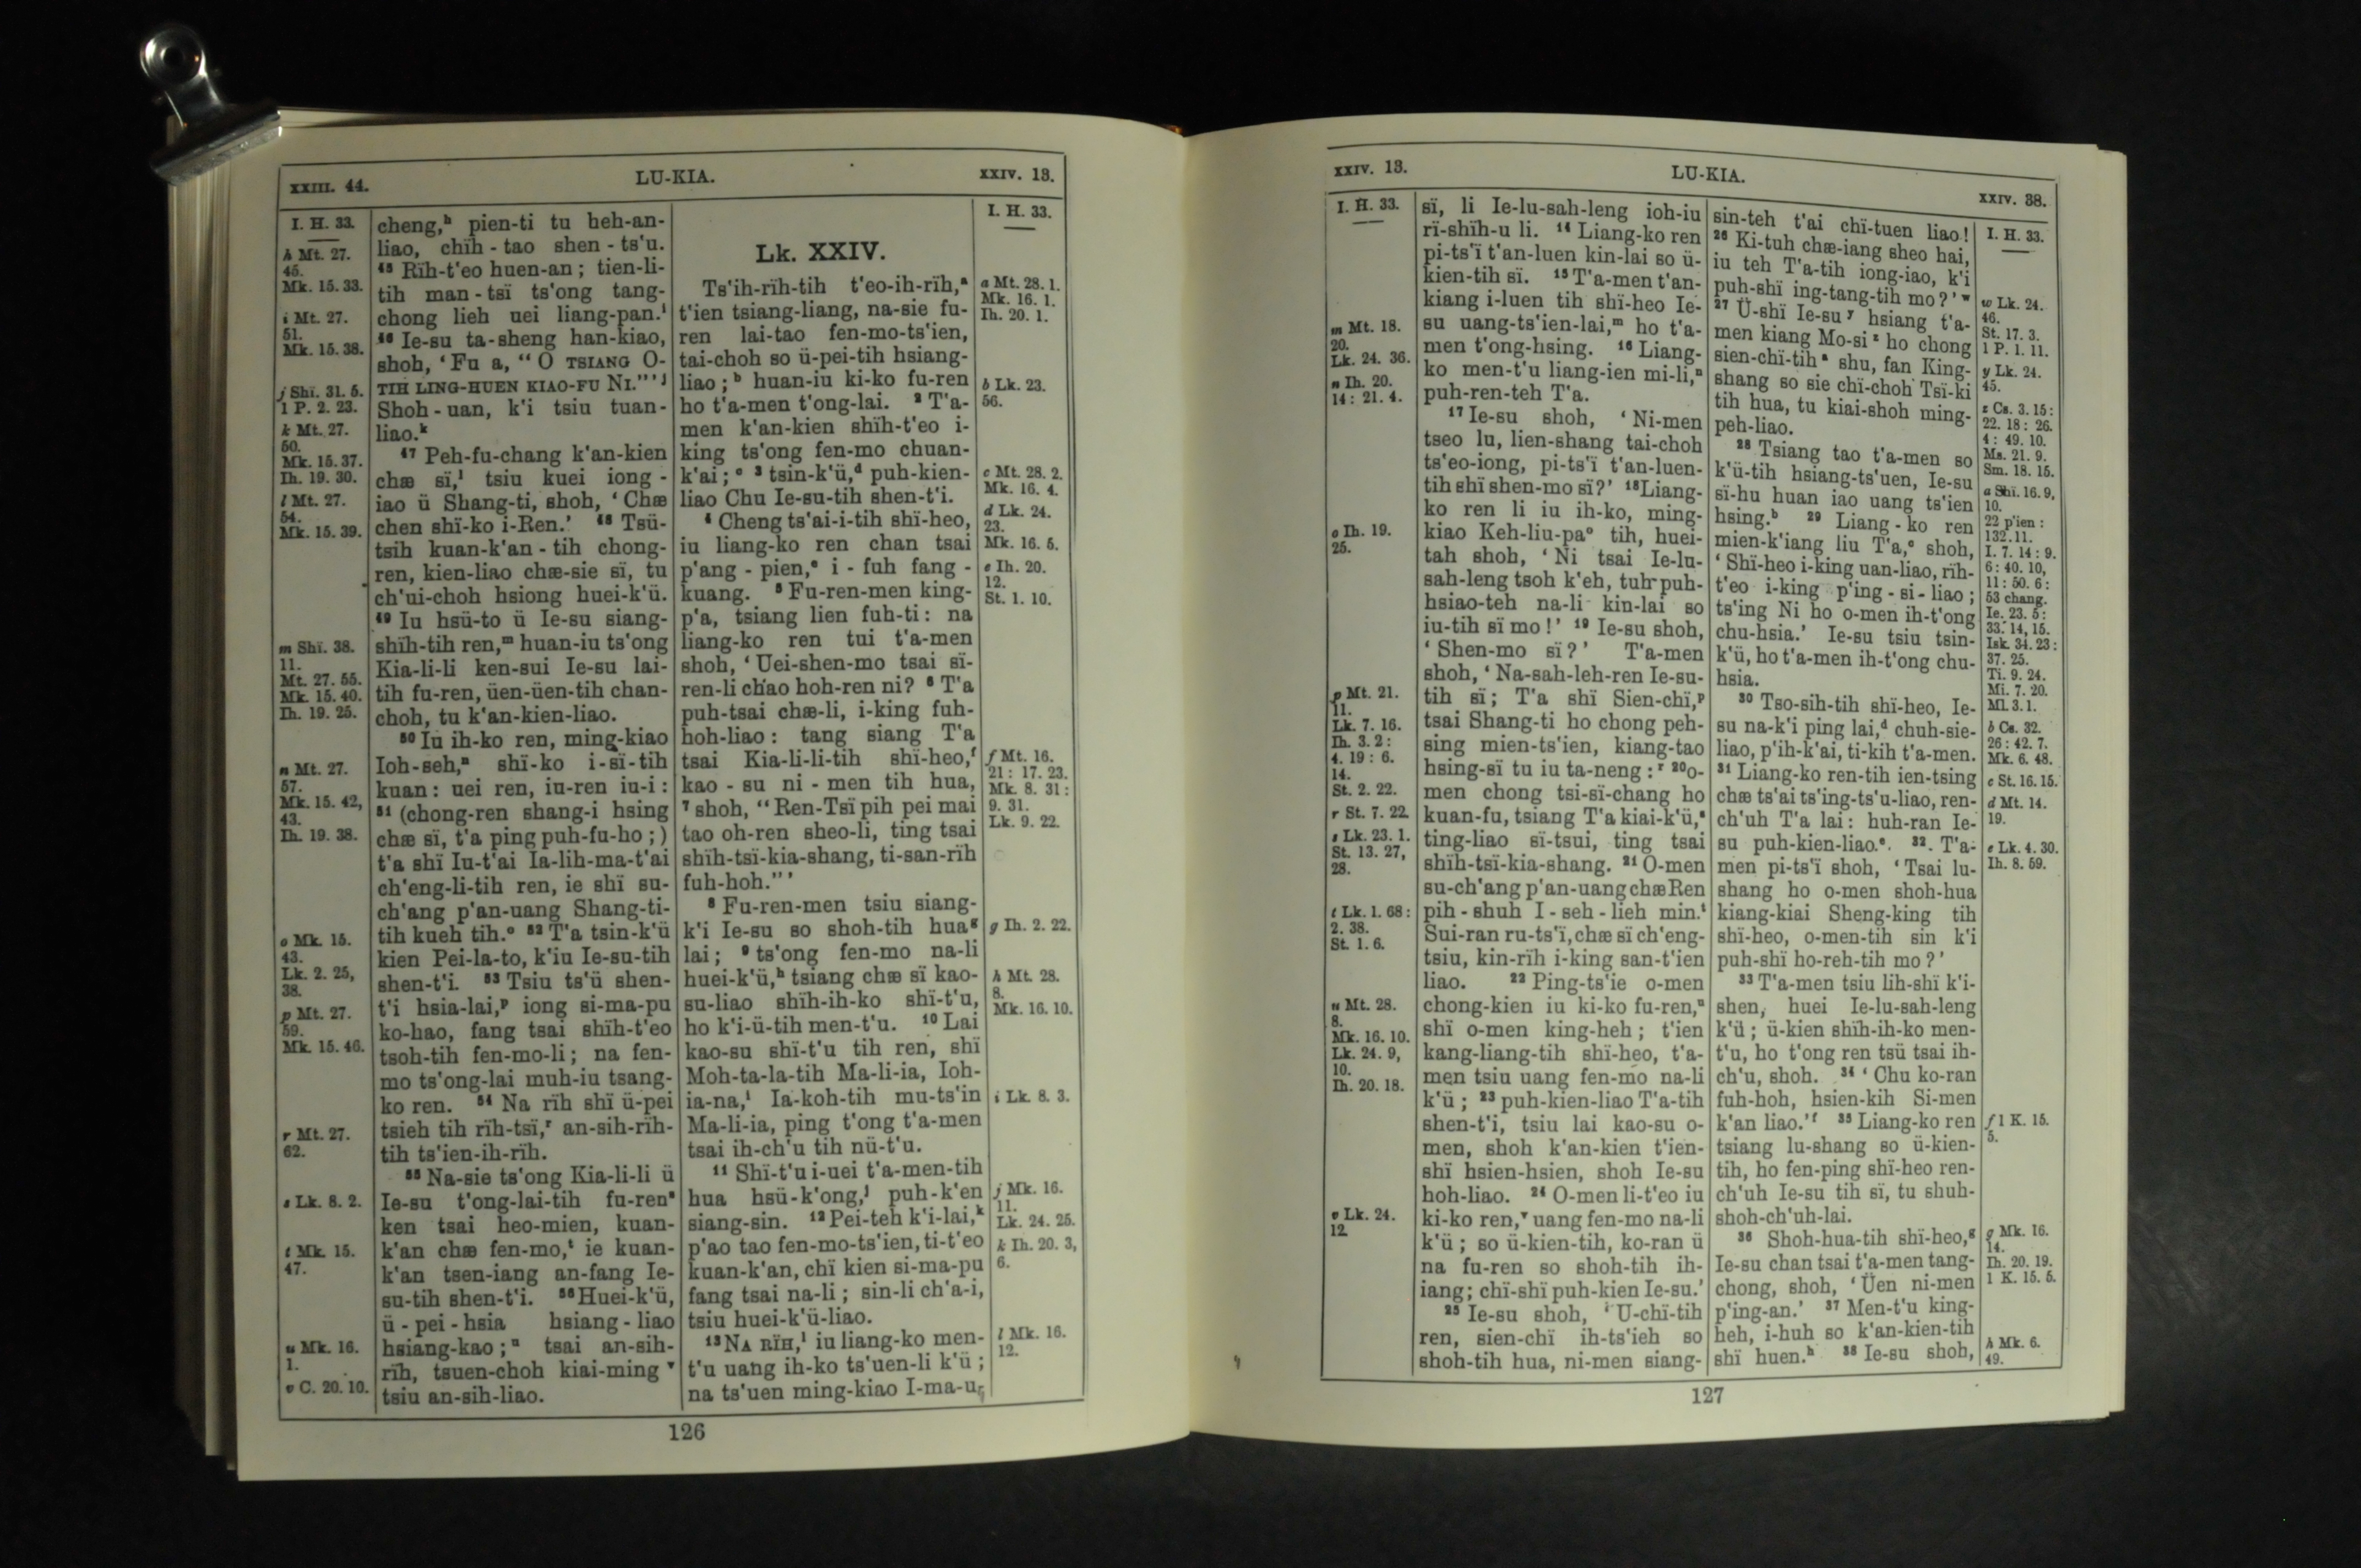 XXIII. 44.
LU-KIA.
XXIV. 13.
I. H. 33.
h Mt. 27.
45.
Mk. 15. 33.
i Mt. 27.
51.
Mk. 15. 38.
j Shï. 31. 5.
1 P. 2. 23.
k Mt. 27.
50.
Mk. 15. 37.
Ih. 19. 30.
l Mt. 27.
54.
Mk. 15. 39.
m Shï. 38.
11.
Mt. 27. 55.
Mk. 15. 40.
Ih. 19. 25.
n Mt. 27.
57.
Mk. 15. 42,
43.
Ih. 19. 38.
o Mk. 15.
43.
Lk. 2. 25,
38.
p Mt. 27.
59.
Mk. 15. 46.
r Mt. 27.
62.
s Lk. 8. 2.
t Mk. 15.
47.
u Mk. 16.
1.
v C. 20. 10.
cheng,h pien-ti tu heh-an-
liao, chïh-tao shen-ts'u.
45 Rïh-t'eo huen-an; tien-li-
tih man-tsï ts'ong tang-
chong lieh uei liang-pan.i
46 Ie-su ta-sheng han-kiao,
shoh, ‘Fu a, “O TSIANG O-
TIH LING-HUEN KIAO-FU NI.”’j
Shoh-uan, k'i tsiu tuan-
liao.k
47 Peh-fu-chang k'an-kien
chæ sï,l tsiu kuei iong-
iao ü Shang-ti, shoh, ‘Chæ
chen shï-ko i-Ren.’ 48 Tsü-
tsih kuan-k'an-tih chong-
ren, kien-liao chæ-sie sï, tu
ch'ui-choh hsiong huei-k'ü.
49 Iu hsü-to ü Ie-su siang-
shïh-tih ren,m huan-iu ts'ong
Kia-li-li ken-sui Ie-su lai-
tih fu-ren, üen-üen-tih chan-
choh, tu k'an-kien-liao.
50 Iu ih-ko ren, ming-kiao
Ioh-seh,n shï-ko i-sï-tih
kuan: uei ren, iu-ren iu-i:
51 (chong-ren shang-i hsing
chæ sï, t'a ping puh-fu-ho;)
t'a shï Iu-t'ai Ia-lih-ma-t'ai
ch'eng-li-tih ren, ie shï su-
ch'ang p'an-uang Shang-ti-
tih kueh tih.o 52 T'a tsin-k'ü
kien Pei-la-to, k'iu Ie-su-tih
shen-t'i. 53 Tsiu ts'ü shen-
t'i hsia-lai,p iong si-ma-pu
ko-hao, fang tsai shïh-t'eo
tsoh-tih fen-mo-li; na fen-
mo ts'ong-lai muh-iu tsang-
ko ren. 54 Na rïh shï ü-pei
tsieh tih rïh-tsï,r an-sih-rïh-
tih ts'ien-ih-rïh.
55 Na-sie ts'ong Kia-li-li ü
Ie-su t'ong-lai-tih fu-rens
ken tsai heo-mien, kuan-
k'an chæ fen-mo,t ie kuan-
k'an tsen-iang an-fang Ie-
su-tih shen-t'i. 56 Huei-k'ü,
ü-pei-hsia hsiang-liao
hsiang-kao;u tsai an-sih-
rïh, tsuen-choh kiai-ming v
tsiu an-sih-liao.
Lk. XXIV.
Ts'ih-rïh-tih t'eo-ih-rïh,a
t'ien tsiang-liang, na-sie fu-
ren lai-tao fen-mo-ts'ien,
tai-choh so ü-pei-tih hsiang-
liao;b huan-iu ki-ko fu-ren
ho t'a-men t'ong-lai. 2 T'a-
men k'an-kien shïh-t'eo i-
king ts'ong fen-mo chuan-
k'ai;c 3 tsin-k'ü,d puh-kien-
liao Chu Ie-su-tih shen-t'i.
4 Cheng ts'ai-i-tih shï-heo,
iu liang-ko ren chan tsai
p'ang-pien,e i-fuh fang-
kuang. 5 Fu-ren-men king-
p'a, tsiang lien fuh-ti: na
liang-ko ren tui t'a-men
shoh, ‘Uei-shen-mo tsai sï-
ren-li chao hoh-ren ni? 6 T'a
puh-tsai chæ-li, i-king fuh-
hoh-liao: tang siang T'a
tsai Kia-li-li-tih shï-heo,f
kao-su ni-men tih hua,
7 shoh, “Ren-Tsï pih pei mai
tao oh-ren sheo-li, ting tsai
shïh-tsï-kia-shang, ti-san-rïh
fuh-hoh.”’
8 Fu-ren-men tsiu siang-
k'i Ie-su so shoh-tih huag
lai; 9 ts'ong fen-mo na-li
huei-k'ü,h tsiang chæ sï kao-
su-liao shïh-ih-ko shï-t'u,
ho k'i-ü-tih men-t'u. 10 Lai
kao-su shï-t'u tih ren, shï
Moh-ta-la-tih Ma-li-ia, Ioh-
ia-na,i Ia-koh-tih mu-ts'in
Ma-li-ia, ping t'ong t'a-men
tsai ih-ch'u tih nü-t'u.
11 Shï-t'u i-uei t'a-men-tih
hua hsü-k'ong,j puh-k'en
siang-sin. 12 Pei-teh k'i-lai,k
p'ao tao fen-mo-ts'ien, ti-t'eo
kuan-k'an, chï kien si-ma-pu
fang tsai na-li; sin-li ch'a-i,
tsiu huei-k'ü-liao.
13 NA RÏH,l iu liang-ko men-
t'u uang ih-ko ts'uen-li k'ü;
na ts'uen ming-kiao I-ma-u-
I. H. 33.
a Mt. 28. 1.
Mk. 16. 1.
Ih. 20. 1.
b Lk. 23.
56.
c Mt. 28. 2.
Mk. 16. 4.
d Lk. 24.
23.
Mk. 16. 5.
e Ih. 20.
12.
St. 1. 10.
f Mt. 16.
21: 17. 23.
Mk. 8. 31:
9. 31.
Lk. 9. 22.
g Ih. 2. 22.
h Mt. 28.
8.
Mk. 16. 10.
i Lk. 8. 3.
j Mk. 16.
11.
Lk. 24. 25.
k Ih. 20. 3,
6.
l Mk. 16.
12.
126
XXIV. 13.
LU-KIA.
XXIV. 38.
I. H. 33.
m Mt. 18.
20.
Lk. 24. 36.
n Ih. 20.
14: 21. 4.
o Ih. 19.
25.
p Mt. 21.
11.
Lk. 7. 16.
Ih. 3. 2:
4. 19: 6.
14.
St. 2. 22.
r St. 7. 22.
s Lk. 23. 1.
St. 13. 27,
28.
t Lk. 1. 68:
2. 38.
St. 1. 6.
u Mt. 28.
8.
Mk. 16. 10.
Lk. 24. 9,
10.
Ih. 20. 18.
v Lk. 24.
12.
sï, li Ie-lu-sah-leng ioh-iu
rï-shïh-u li. 14 Liang-ko ren
pi-ts'ï t'an-luen kin-lai so ü-
kien-tih sï. 15 T'a-men t'an-
kiang i-luen tih shï-heo Ie-
su uang-ts'ien-lai,m ho t'a-
men t'ong-hsing. 16 Liang-
ko men-t'u liang-ien mi-li,n
puh-ren-teh T'a.
17 Ie-su shoh, ‘Ni-men
tseo lu, lien-shang tai-choh
ts'eo-iong, pi-ts'ï t'an-luen-
tih shï shen-mo sï?’ 18 Liang-
ko ren li iu ih-ko, ming-
kiao Keh-liu-pao tih, huei-
tah shoh, ‘Ni tsai Ie-lu-
sah-leng tsoh k'eh, tuh puh-
hsiao-teh na-li kin-lai so
iu-tih sï mo!’ 19 Ie-su shoh,
‘Shen-mo sï?’ T'a-men
shoh, ‘Na-sah-leh-ren Ie-su-
tih sï; T'a shï Sien-chï,p
tsai Shang-ti ho chong peh-
sing mien-ts'ien, kiang-tao
hsing-sï tu iu ta-neng:r 20 o-
men chong tsi-sï-chang ho
kuan-fu, tsiang T'a kiai-k'ü,s
ting-liao sï-tsui, ting tsai
shïh-tsï-kia-shang. 21 O-men
su-ch'ang p'an-uang chæ Ren
pih-shuh I-seh-lieh min.t
Sui-ran ru-ts'ï, chæ sï ch'eng-
tsiu, kin-rïh i-king san-t'ien
liao. 22 Ping-ts'ie o-men
chong-kien iu ki-ko fu-ren,u
shï o-men king-heh; t'ien
kang-liang-tih shï-heo, t'a-
men tsiu uang fen-mo na-li
k'ü; 23 puh-kien-liao T'a-tih
shen-t'i, tsiu lai kao-su o-
men, shoh k'an-kien t'ien-
shï hsien-hsien, shoh Ie-su
hoh-liao. 24 O-men li-t'eo iu
ki-ko ren,v uang fen-mo na-li
k'ü; so ü-kien-tih, ko-ran ü
na fu-ren so shoh-tih ih-
iang; chï-shï puh-kien Ie-su.’
25 Ie-su shoh, ‘U-chï-tih
ren, sien-chï ih-ts'ieh so
shoh-tih hua, ni-men siang-
sin-teh t'ai chï-tuen liao!
26 Ki-tuh chæ-iang sheo hai,
iu teh T'a-tih iong-iao, k'i
puh-shï ing-tang-tih mo?’w
27 Ü-shï Ie-su y hsiang t'a-
men kiang Mo-si z ho chong
sien-chï-tih a shu, fan King-
shang so sie chï-choh Tsï-ki
tih hua, tu kiai-shoh ming-
peh-liao.
28 Tsiang tao t'a-men so
k'ü-tih hsiang-ts'uen, Ie-su
sï-hu huan iao uang ts'ien
hsing.b 29 Liang-ko ren
mien-k'iang liu T'a,c shoh,
‘Shï-heo i-king uan-liao, rïh-
t'eo i-king p'ing-si-liao;
ts'ing Ni ho o-men ih-t'ong
chu-hsia.’ Ie-su tsiu tsin-
k'ü, ho t'a-men ih-t'ong chu-
hsia.
30 Tso-sih-tih shï-heo, Ie-
su na-k'i ping lai,d chuh-sie-
liao, p'ih-k'ai, ti-kih t'a-men.
31 Liang-ko ren-tih ien-tsing
chæ ts'ai ts'ing-ts'u-liao, ren-
ch'uh T'a lai: huh-ran Ie-
su puh-kien-liao.e 32 T'a-
men pi-ts'ï shoh, ‘Tsai lu-
shang ho o-men shoh-hua
kiang-kiai Sheng-king tih
shï-heo, o-men-tih sin k'i
puh-shï ho-reh-tih mo?’
33 T'a-men tsiu lih-shï k'i-
shen, huei Ie-lu-sah-leng
k'ü; ü-kien shïh-ih-ko men-
t'u, ho t'ong ren tsü tsai ih-
ch'u, shoh. 34 ‘Chu ko-ran
fuh-hoh, hsien-kih Si-men
k'an liao.’f 35 Liang-ko ren
tsiang lu-shang so ü-kien-
tih, ho fen-ping shï-heo ren-
ch'uh Ie-su tih sï, tu shuh-
shoh-ch'uh-lai.
36 Shoh-hua-tih shï-heo,g
Ie-su chan tsai t'a-men tang-
chong, shoh, ‘Üen ni-men
p'ing-an.’ 37 Men-t'u king-
heh, i-huh so k'an-kien-tih
shï huen.h 38 Ie-su shoh,
I. H. 33.
w Lk. 24.
46.
St. 17. 3.
1 P. 1. 11.
y Lk. 24.
45.
z Cs. 3. 15:
22. 18: 26.
4: 49. 10.
Ms. 21. 9.
Sm. 18. 15.
a Shï. 16. 9,
10.
22 p'ien:
132. 11.
I. 7. 14: 9.
6: 40. 10,
11: 50. 6:
53 chang.
Ie. 23. 5:
33. 14, 15.
Isk. 34. 23:
37. 25.
Ti. 9. 24.
Mi. 7. 20.
Ml. 3. 1.
b Cs. 32.
26: 42. 7.
Mk. 6. 48.
c St. 16. 15.
d Mt. 14.
19.
e Lk. 4. 30.
Ih. 8. 59.
f 1 K. 15.
5.
g Mk. 16.
14.
Ih. 20. 19.
1 K. 15. 5.
h Mk. 6.
49.
127